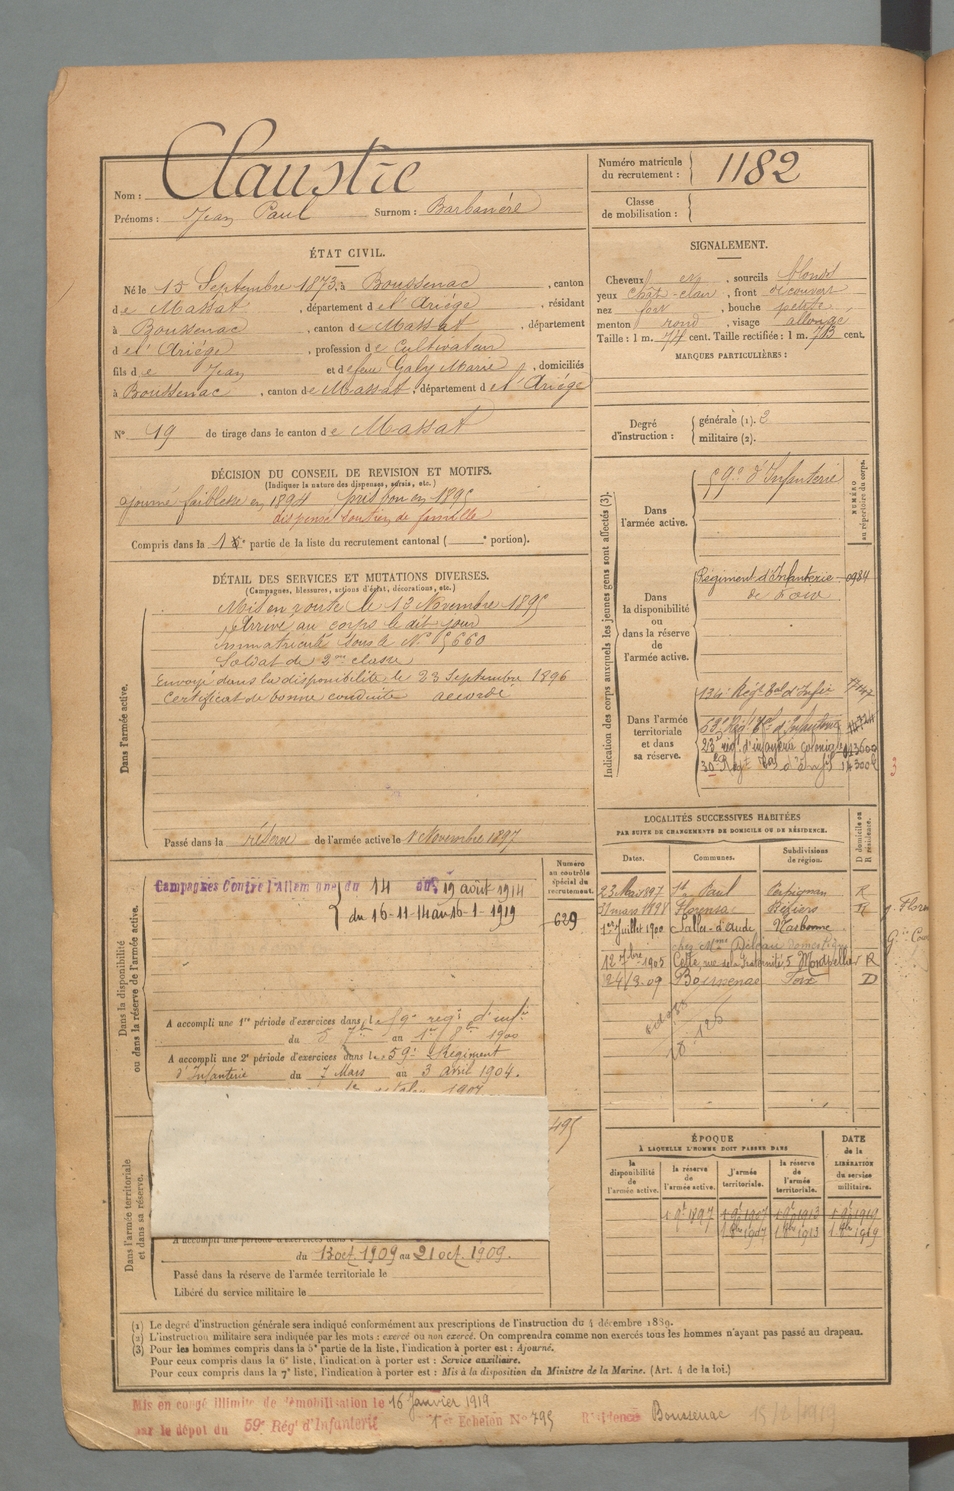 Nom : Claustre
Prénoms : Jean Paul Surnom :
Numéro matricule du recrutement : 1182
Classe de mobilisation :
ÉTAT CIVIL.
Né le 15 Septembre 1873, à Boussenac, canton
de Massat, département de l'Ariége, résidant
à Boussenac, canton de Massat, département
de l'Ariége, profession de Cultivateur
fils de Jean et de feue Galy Marie, domiciliés
à Boussenac, canton de Massat, département de l'Ariége
N° 19 de tirage dans le canton de Massat
SIGNALEMENT.
Cheveux et, sourcils blonds
yeux chât-clair, front découvert
nez fort, bouche petite
menton rond, visage allongé
Taille : 1 m. 74 cent. Taille rectifiée : 1 m. cent.
MARQUES PARTICULIÈRES :
Degré d'instruction :
générale (1). 3
militaire (2).
DÉCISION DU CONSEIL DE REVISION ET MOTIFS.
(Indiquer la nature des dispenses, sursis, etc.)
ajourné faiblesse en 1894 pris bon en 1895
dispensé soutien de famille
Compris dans la 1e partie de la liste du recrutement cantonal ( e portion).
DÉTAIL DES SERVICES ET MUTATIONS DIVERSES.
(Campagnes, blessures, actions d'éclat, décorations, etc.)
Dans l'armée active.
Mis en route le 13 Novembre 1895
Arrivé au corps le dit jour
Immatriculé sous le N°
Soldat de 2me classe
Envoyé dans la disponibilité le 23 Septembre 1896
Certificat de bonne conduite accordé
Passé dans la réserve de l'armée active le 1 Novembre 1897
Indication des corps auxquels les jeunes gens sont affectés (3).
NUMÉRO au répertoire du corps.
Dans l'armée active.
59e d'Infanterie
Dans la disponibilité ou dans la réserve de l'armée active.
Régiment d'Infanterie 0984
de Foix
Dans l'armée territoriale et dans sa réserve.
134e Régt Tal d'Infie
23e régt d'infanterie coloniale
30e Régt Tal d'Infie
3
LOCALITÉS SUCCESSIVES HABITÉES
PAR SUITE DE CHANGEMENTS DE DOMICILE OU DE RÉSIDENCE.
Dates. Communes. Subdivisions de région. D domicile ou R résidence.
23 Mai 1897 St Paul Perpignan R
31 mars 1898 Florensac Béziers R
1er Juillet 1900 Salles-d'aude Narbonne
chez Mme
1905 Cette, rue de la Fraternité 5 Montpellier R
24/3.09 Boussenac Foix D
Dans la disponibilité ou dans la réserve de l'armée active.
Campagnes Contre l'Allemagne du 14 au 19 août 1914
du 16-11-14 au 16-1-1919
Numéro au contrôle spécial du recrutement.
629
A accompli une 1re période d'exercices dans le 59e regt d'infie
du 5 7bre au 1er 8bre 1900
A accompli une 2e période d'exercices dans le 59e Régiment
d'Infanterie du 7 Mars au 3 avril 1904.
495
Dans l'armée territoriale et dans sa réserve.
A accompli une période d'exercices dans
du 13 oct. 1909 au 21 oct. 1909.
Passé dans la réserve de l'armée territoriale le
Libéré du service militaire le
ÉPOQUE
À LAQUELLE L'HOMME DOIT PASSER DANS
DATE de la LIBÉRATION du service militaire.
la disponibilité de l'armée active. la réserve de l'armée active. l'armée territoriale. la réserve de l'armée territoriale.
1 9bre 1897 1 9bre 1907 1 9bre 1913 1 9bre 1919
1 8bre 1907 1 8bre 1913 1 8bre 1919
(1) Le degré d'instruction générale sera indiqué conformément aux prescriptions de l'instruction du 4 décembre 1889.
(2) L'instruction militaire sera indiquée par les mots : exercé ou non exercé. On comprendra comme non exercés tous les hommes n'ayant pas passé au drapeau.
(3) Pour les hommes compris dans la 5e partie de la liste, l'indication à porter est : Ajourné.
Pour ceux compris dans la 6e liste, l'indication à porter est : Service auxiliaire.
Pour ceux compris dans la 7e liste, l'indication à porter est : Mis à la disposition du Ministre de la Marine. (Art. 4 de la loi.)
Mis en congé illimité de démobilisation le 16 Janvier 1919
Echelon N° 795 Résidence Boussenac 15/2/1919
par le dépôt du 59e Rég' d'Infanterie